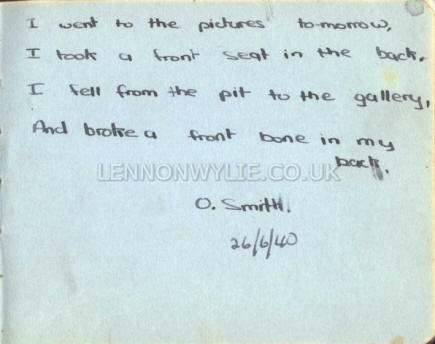 I went to the pictures to-morrow,
I took a front seat in the back.
I fell from the pit to the gallery,
And broke a front bone in my
back.
LENNONWYLIE.CO.UK
O. Smith.
26/6/40